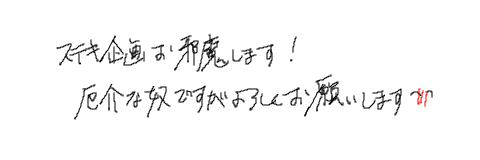 ステキ企画お邪魔します!
厄介な奴ですがよろしくお願いします